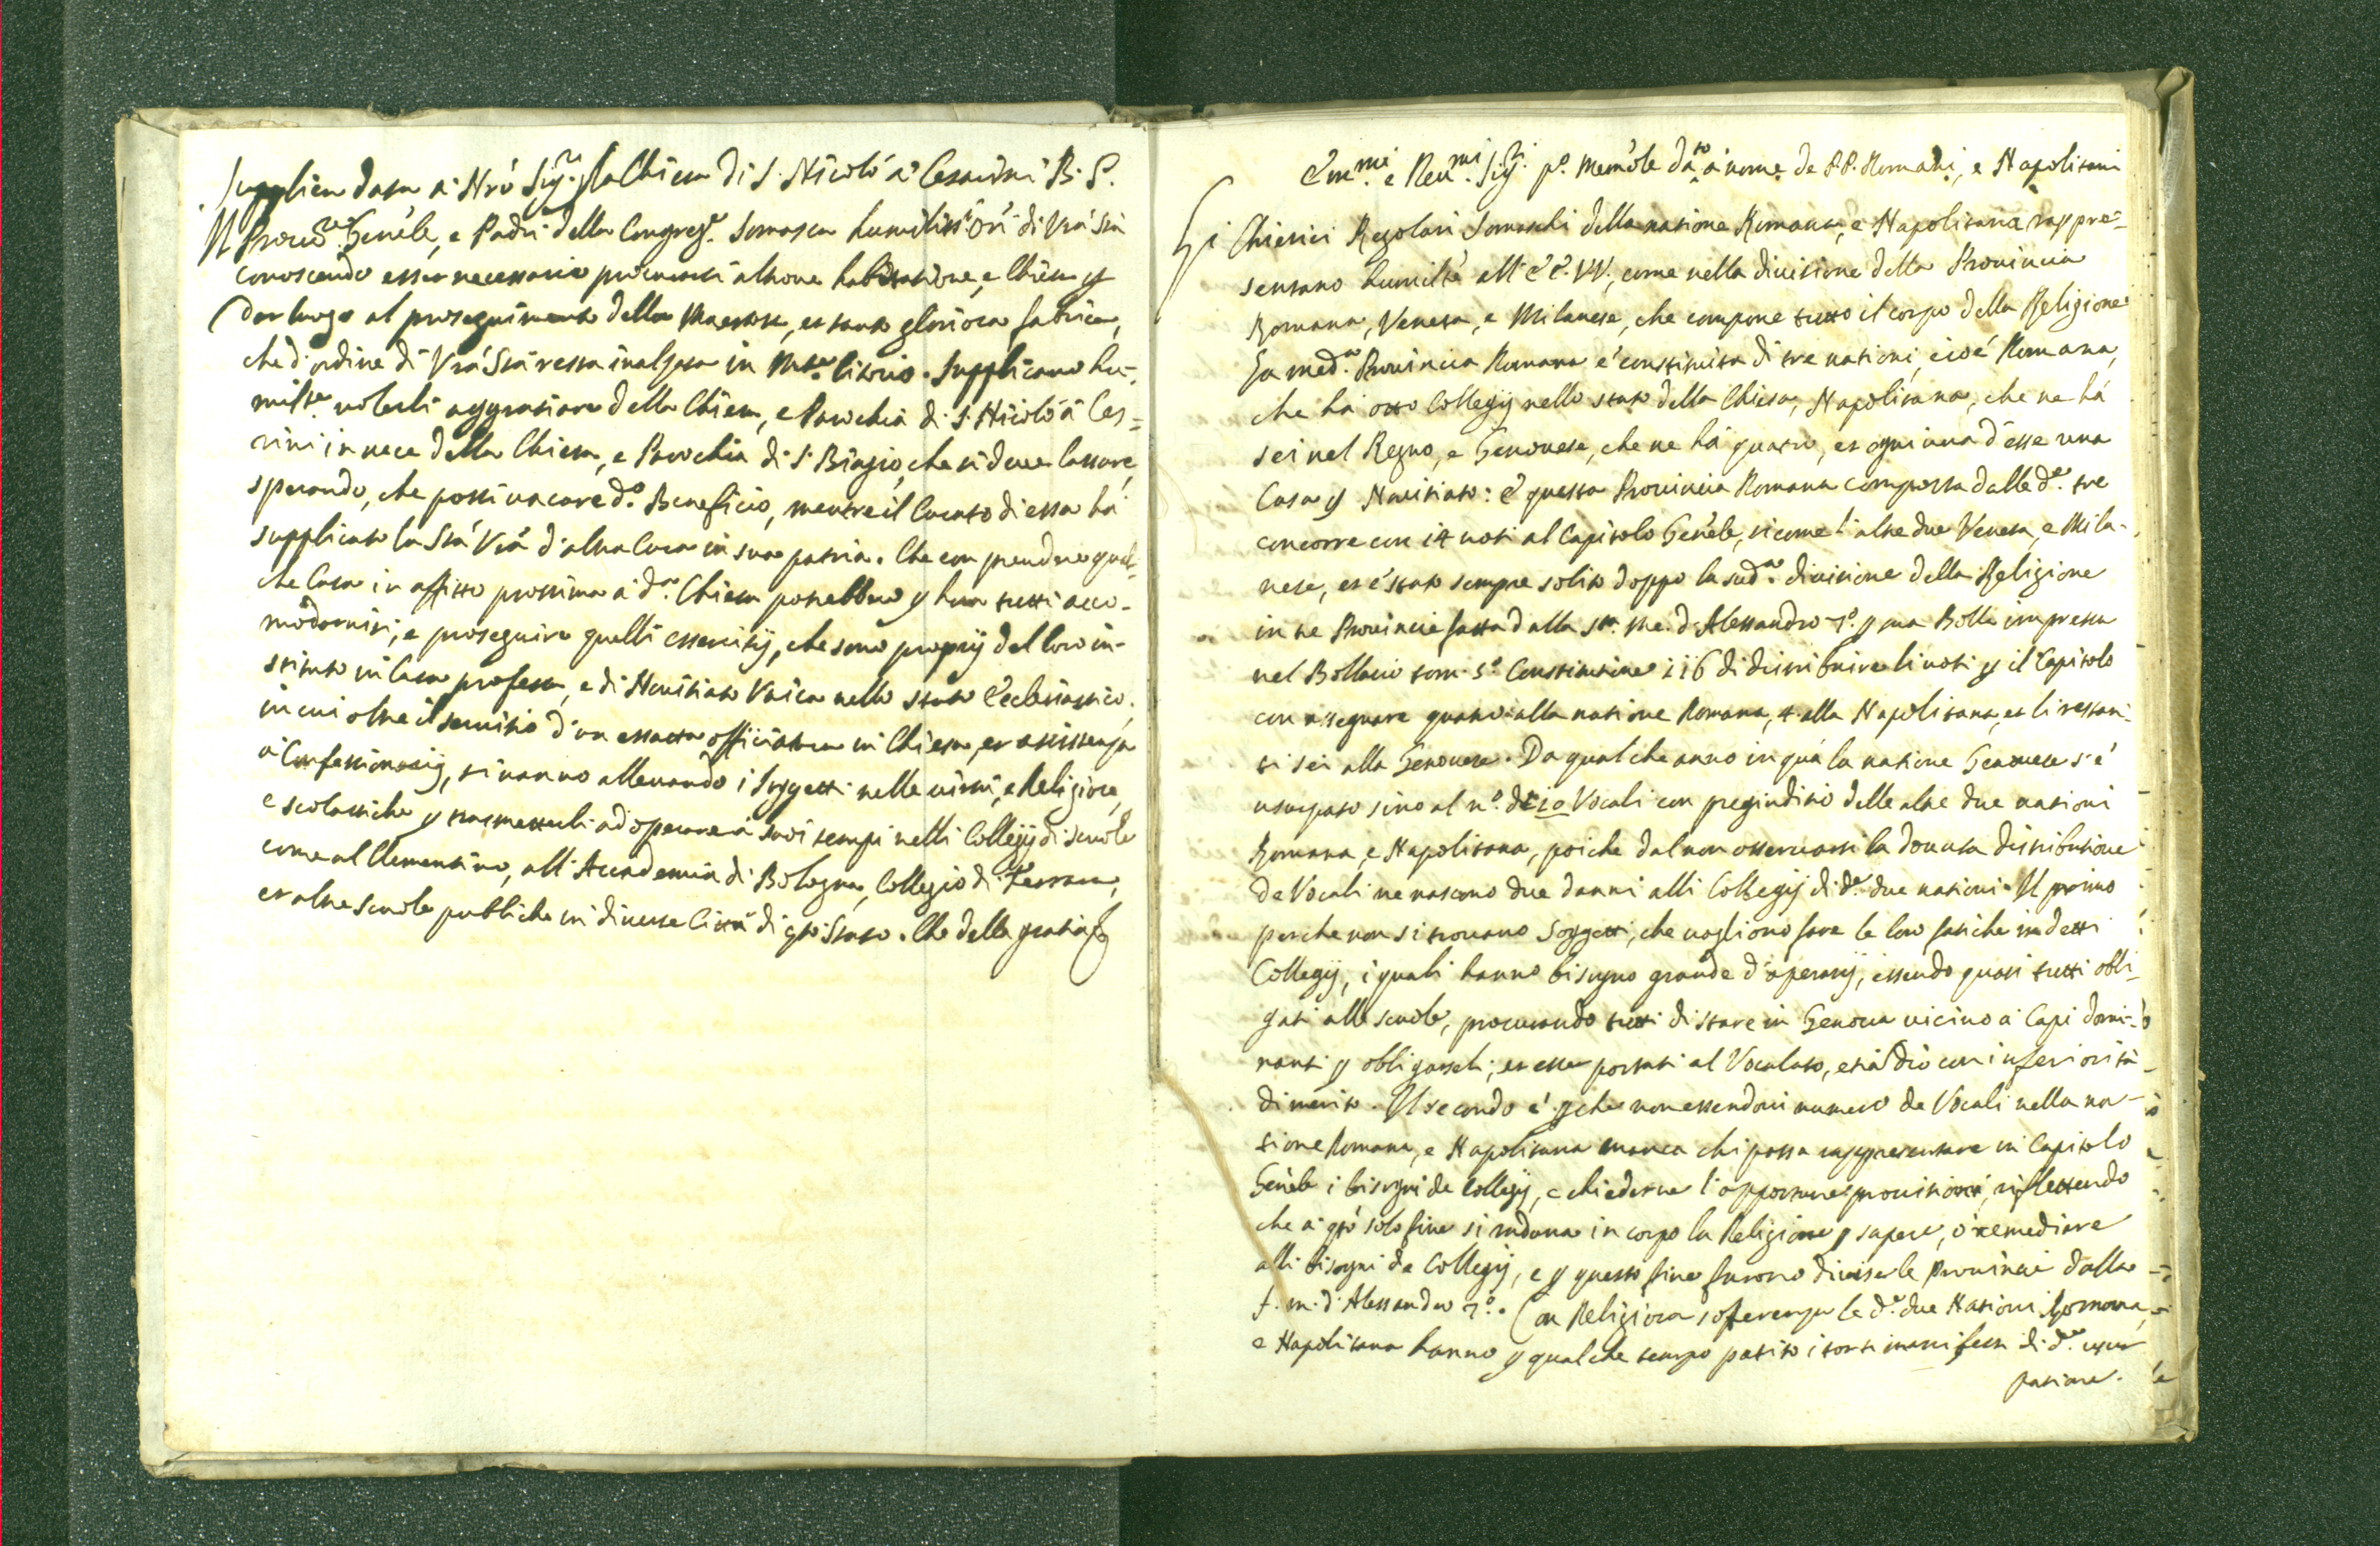 Supplica data à Nrõ Sig.re p la Chiesa di S. Nicolò à Cesarini B. P.
Il Procur.re Genẽle, e Padri della Congreg.e Somasca humiliss.i Orĩ di Vrã Stà
conoscendo esser necessario procurarsi altrove habitatione, e Chiesa p
dar luogo al proseguimento della Maestosa, et tanto gloriosa fabrica,
che d'ordine di Vrã Stà resta inalzata in M.te Citorio. Supplicano hu-
milm.te volerli aggratiare della Chiesa, e Parochia di S. Nicolò à Ces=
rini in vece della Chiesa, e Parochia di S. Biagio, che si deve lassare,
sperando, che possi vacare d.o Beneficio, mentre il Curato di essa hà
supplicato la Stà Vrã d'altra Cura in sua patria. Che con prendere qual-
che Casa in affitto prossima à d.a Chiesa potrebbero p hora tutti acco-
modarvisi, e proseguire quelli essercitij, che sono proprij del loro in-
stituto in Casa professa, e di Novitiato Unica nello stato Ecclesiastico,
in cui oltre il servitio d'un essatta officiatura in Chiesa, et assistenza
à Confessionarij, si vanno allevando i soggetti nelle virtù, e Religiose,
e scolastiche p trasmetterli ad operare à suoi tempi nelli Collegij di scuole
come al Clementino, all'Accademia di Bologna, Collegio di Ferrara,
et altre scuole publiche in diverse Città di qto Stato. Che della gratia &
Em.mi e Rev.mi Sig.ri p.o Memõle dato à nome de PP. Romani, e Napolitani
Li Chierici Regolari Somaschi della natione Romana, e Napolitana rappre=
sentano humiltè all'EE. VV., come nella divisione della Provincia
Romana, Veneta, e Milanese, che compone tutto il corpo della Religione
La med.a Provincia Romana è constituita di tre nationi, cioè Romana,
che hà otto Collegij nello stato della Chiesa, Napolitana, che ne hà
sei nel Regno, e Genovese, che ne hà quatro, et ogni una d'esse una
Casa p Novitiato: E questa Provincia Romana composta dalle d.e tre
concorre con 14 voti al Capitolo Genẽle, sicome l'altre due Veneta, e Mila-
nese, et è stato sempre solito doppo la sud.a divisione della Religione
in tre Provincie fatta dalla s.ta me. d'Alessandro 7.o p sua Bolla impressa
nel Bollario tom. 5.o Constitutione 116 di distribuire li voti p il Capitolo
con assegnare quatro alla natione Romana, 4 alla Napolitana, et li restan-
ti sei alla Genovese. Da qualche anno in quà la natione Genovese s'è
usurpato sino al n.o di 10 Vocali con pregiuditio delle altre due nationi
Romana, e Napolitana, poiche dal non osservarsi la dovuta distributione
de Vocali ne nascono due danni alli Collegij di d.e due nationi. Il primo
perche non si trovano soggetti, che vogliono fare le loro fatiche in detti
Collegij, i quali hanno bisogno grande d'operarij, essendo quasi tutti obli-
gati alle scuole, procurando tutti di stare in Genova vicino à Capi domi-
nanti p obligarseli, et esser portati al Vocalato, etiã dio con inferiorità
di merito. Il secondo è pche non essendovi numero de Vocali nella na-
tione Romana, e Napolitana manca chi possa rappresentare in Capitolo
Genẽle i bisogni de Collegij, e chiederne l'opportune provisioni, riflettendo
che à qto solo fine si raduna in corpo la Religione p sapere, ò remediare
alli bisogni de Collegij, e p questo fine furono divise le Provincie dalla
f. m. d'Alessandro 7.o. Con Religiosa sofferenza le d.e due Nationi Romana,
e Napolitana hanno p qualche tempo patito i torti manifesti di d.a usur
patione.